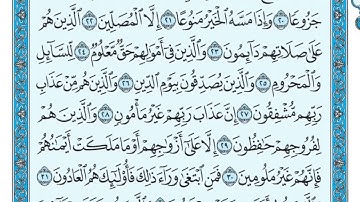 جَزُوعًا ٢٠ وَإِذَا مَسَّهُ ٱلْخَيْرُ مَنُوعًا ٢١ إِلَّا ٱلْمُصَلِّينَ ٢٢ ٱلَّذِينَ هُمْ
عَلَىٰ صَلَاتِهِمْ دَآئِمُونَ ٢٣ وَٱلَّذِينَ فِىٓ أَمْوَٰلِهِمْ حَقٌّ مَّعْلُومٌ ٢٤ لِّلسَّآئِلِ
وَٱلْمَحْرُومِ ٢٥ وَٱلَّذِينَ يُصَدِّقُونَ بِيَوْمِ ٱلدِّينِ ٢٦ وَٱلَّذِينَ هُم مِّنْ عَذَابِ
رَبِّهِم مُّشْفِقُونَ ٢٧ إِنَّ عَذَابَ رَبِّهِمْ غَيْرُ مَأْمُونٍ ٢٨ وَٱلَّذِينَ هُمْ
لِفُرُوجِهِمْ حَٰفِظُونَ ٢٩ إِلَّا عَلَىٰٓ أَزْوَٰجِهِمْ أَوْ مَا مَلَكَتْ أَيْمَٰنُهُمْ
فَإِنَّهُمْ غَيْرُ مَلُومِينَ ٣٠ فَمَنِ ٱبْتَغَىٰ وَرَآءَ ذَٰلِكَ فَأُو۟لَٰٓئِكَ هُمُ ٱلْعَادُونَ ٣١